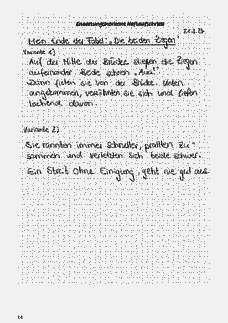 Mein Ende der Fabel: „Die beiden Ziegen
Variante 1)
Auf der Mitte der Brücke stießen die Ziegen
aufeinander. Beide schrien „Aua!"
Dann fielen sie von der Brücke. Unten
angekommen, versöhnten sie sich und liefen
lachend davon.
Variante 2)
Sie rannten immer schneller, prallten zu-
sammen und verletzten sich beide schwer.
Ein Streit ohne Einigung, geht nie gut aus
14